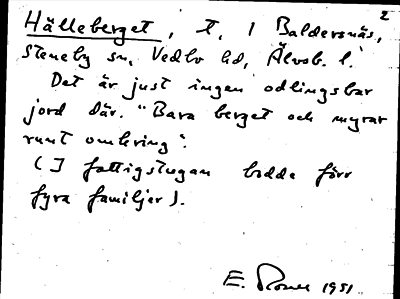 2
Hälleberget, t, 1 Baldersnäs,
Steneby sn, Vedbo hd, Älvsb. l.
Det är just ingen odlingsbar
jord där. "Bara berget och myrar
runt omkring".
(I fattigstugan bodde förr
fyra familjer).
E. 1951